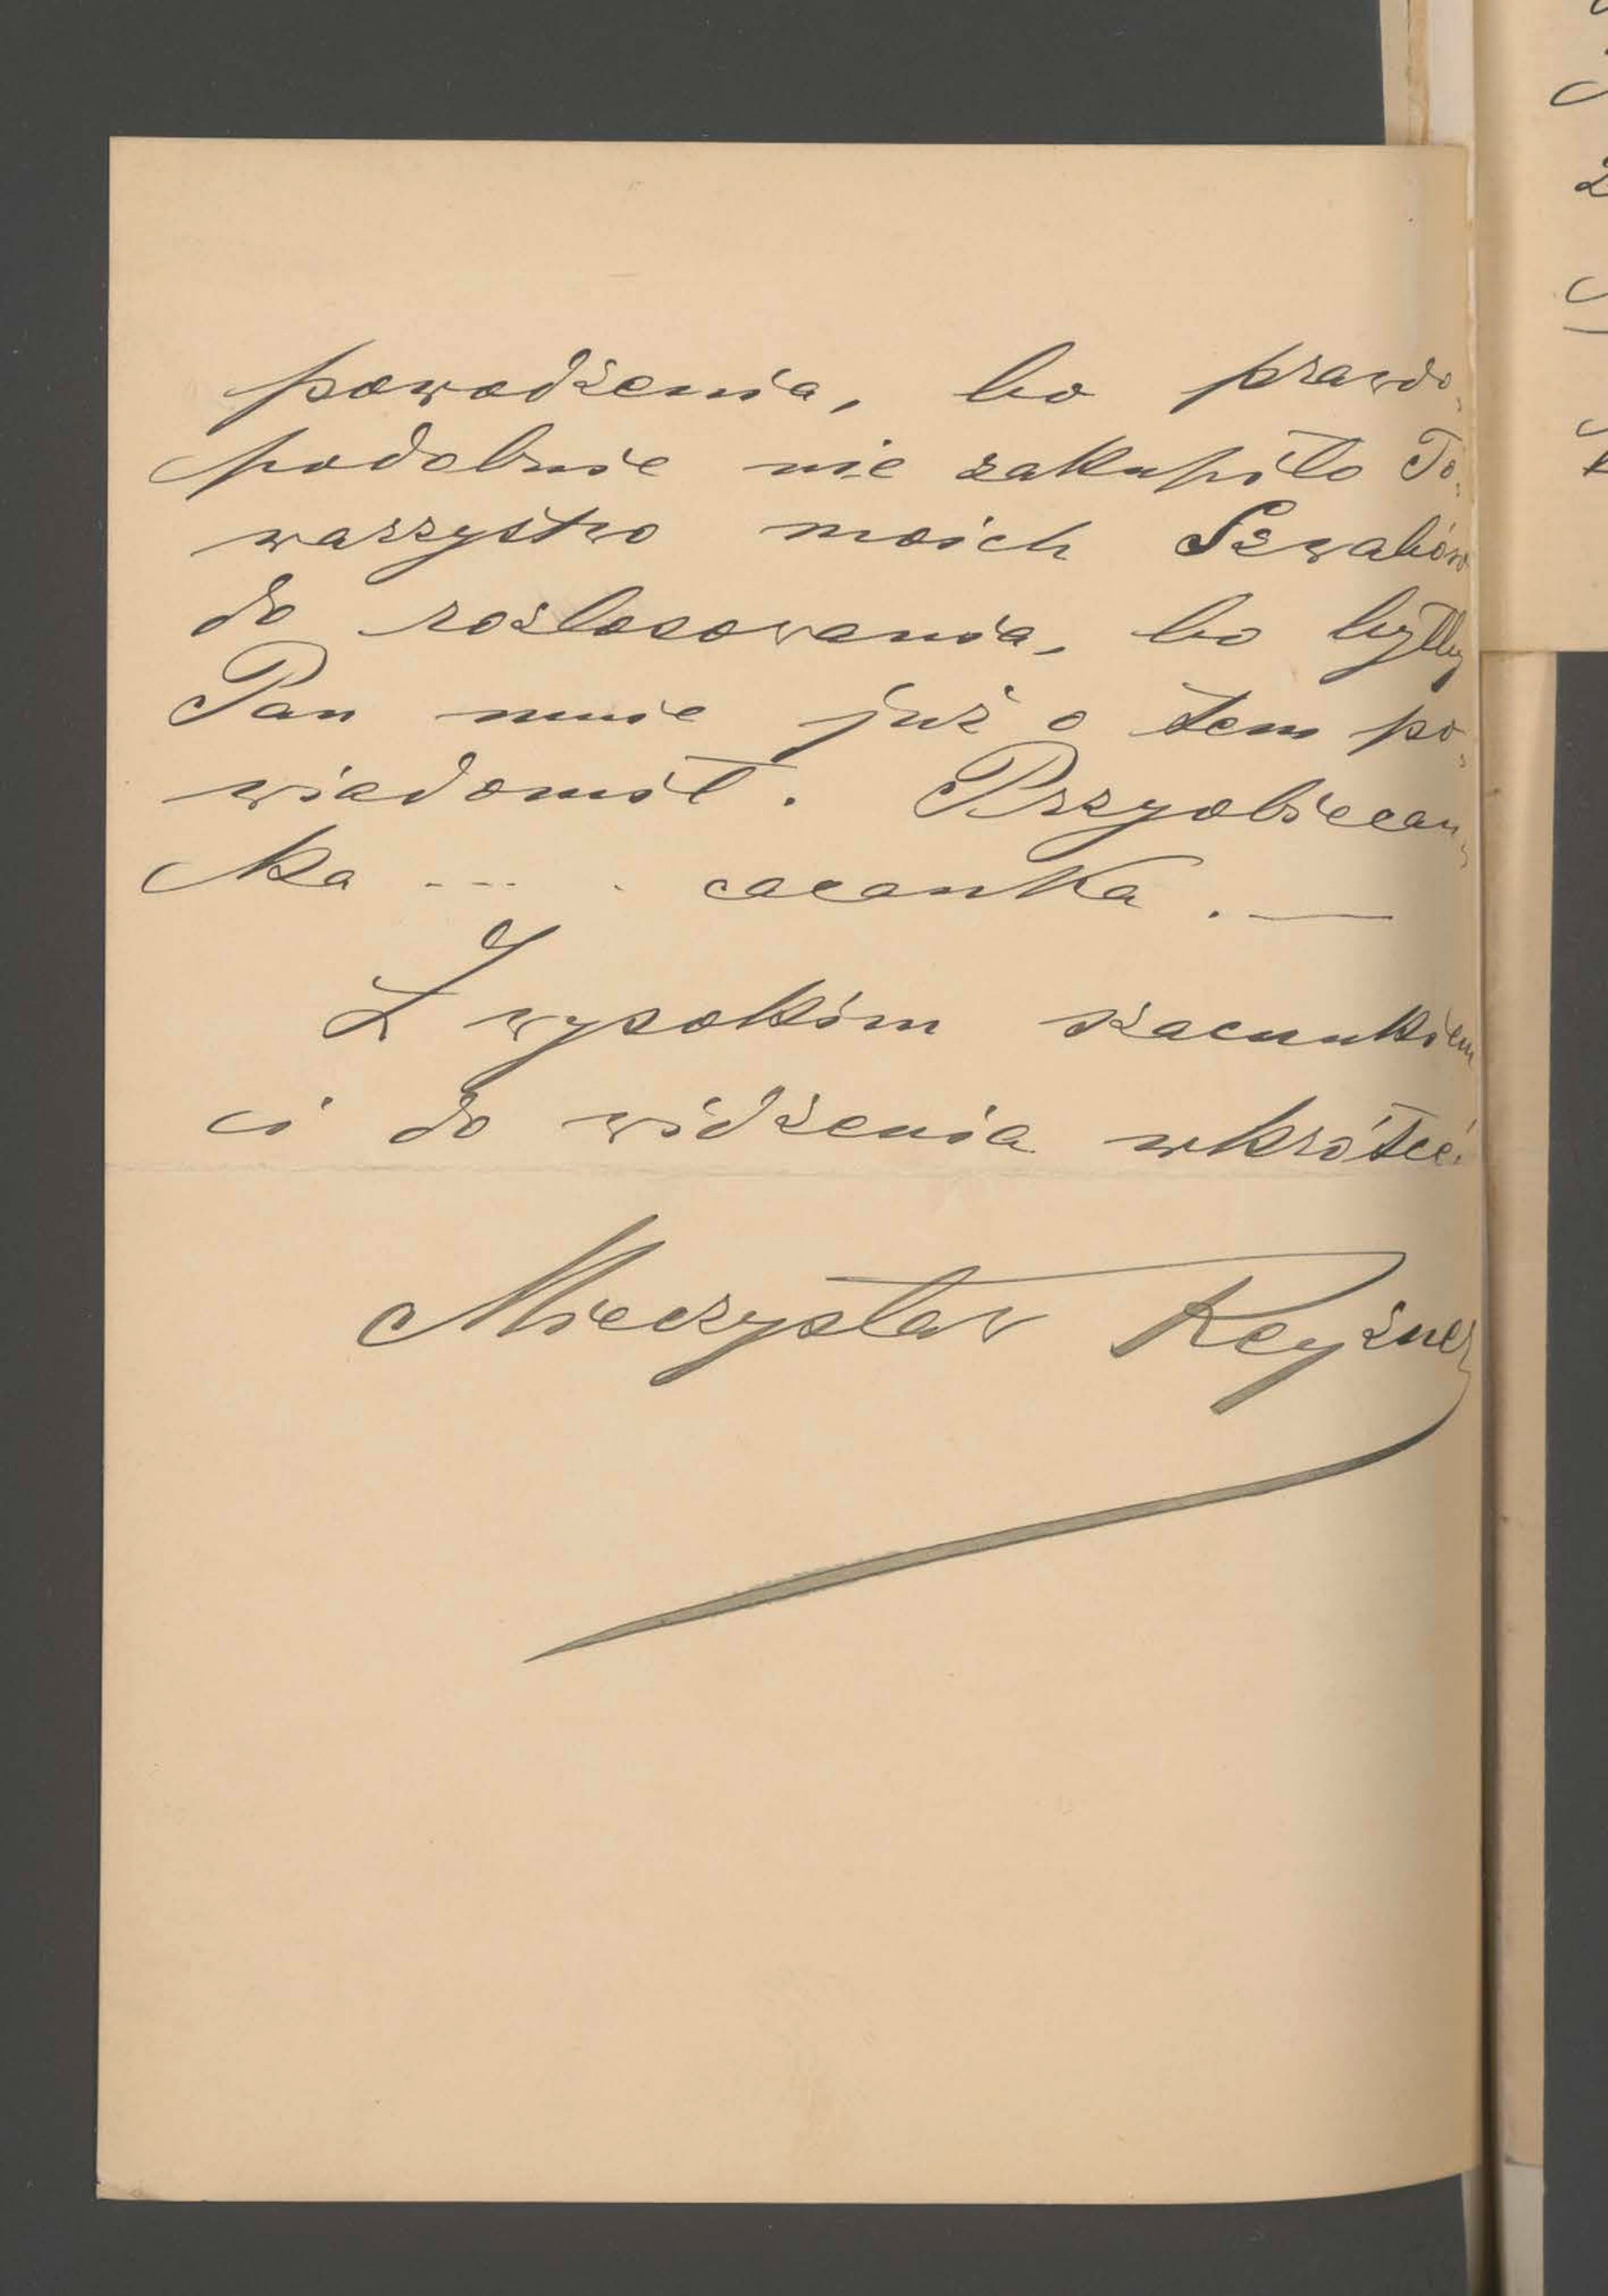 powodzenia, bo prawdo,
podobnie nie zakupiło To,
warzystwo moich Szwabów
do rozlosowania, bo byłby
Pan mnie już o tem po,
wiadomił. Przyobiecan,
ka --- . cacanka. —
Z wysokim szacunkiem
i do widzenia wkrótce.
Mieczysław Reyzner